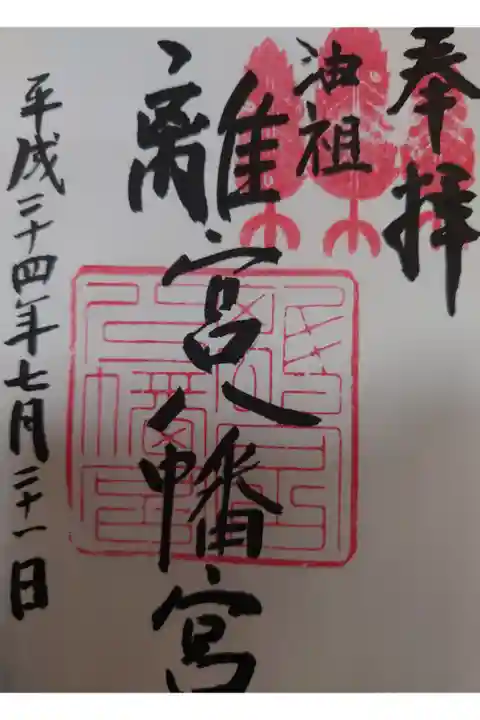 奉拝
油祖
離宮八幡宮
平成二十四年七月二十一日